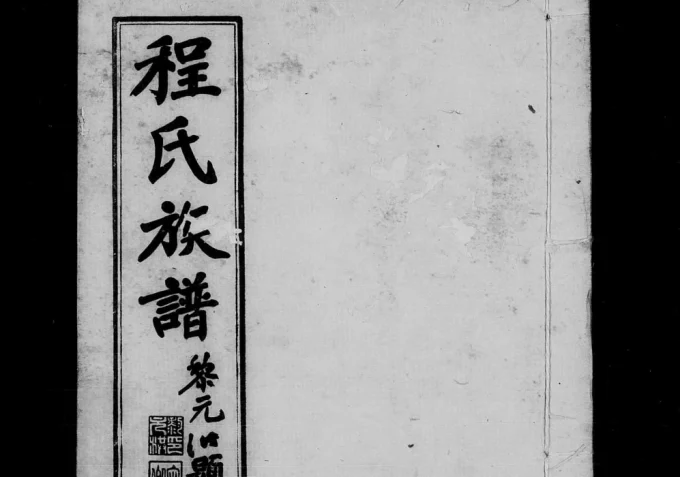 程氏族譜
黎元洪題